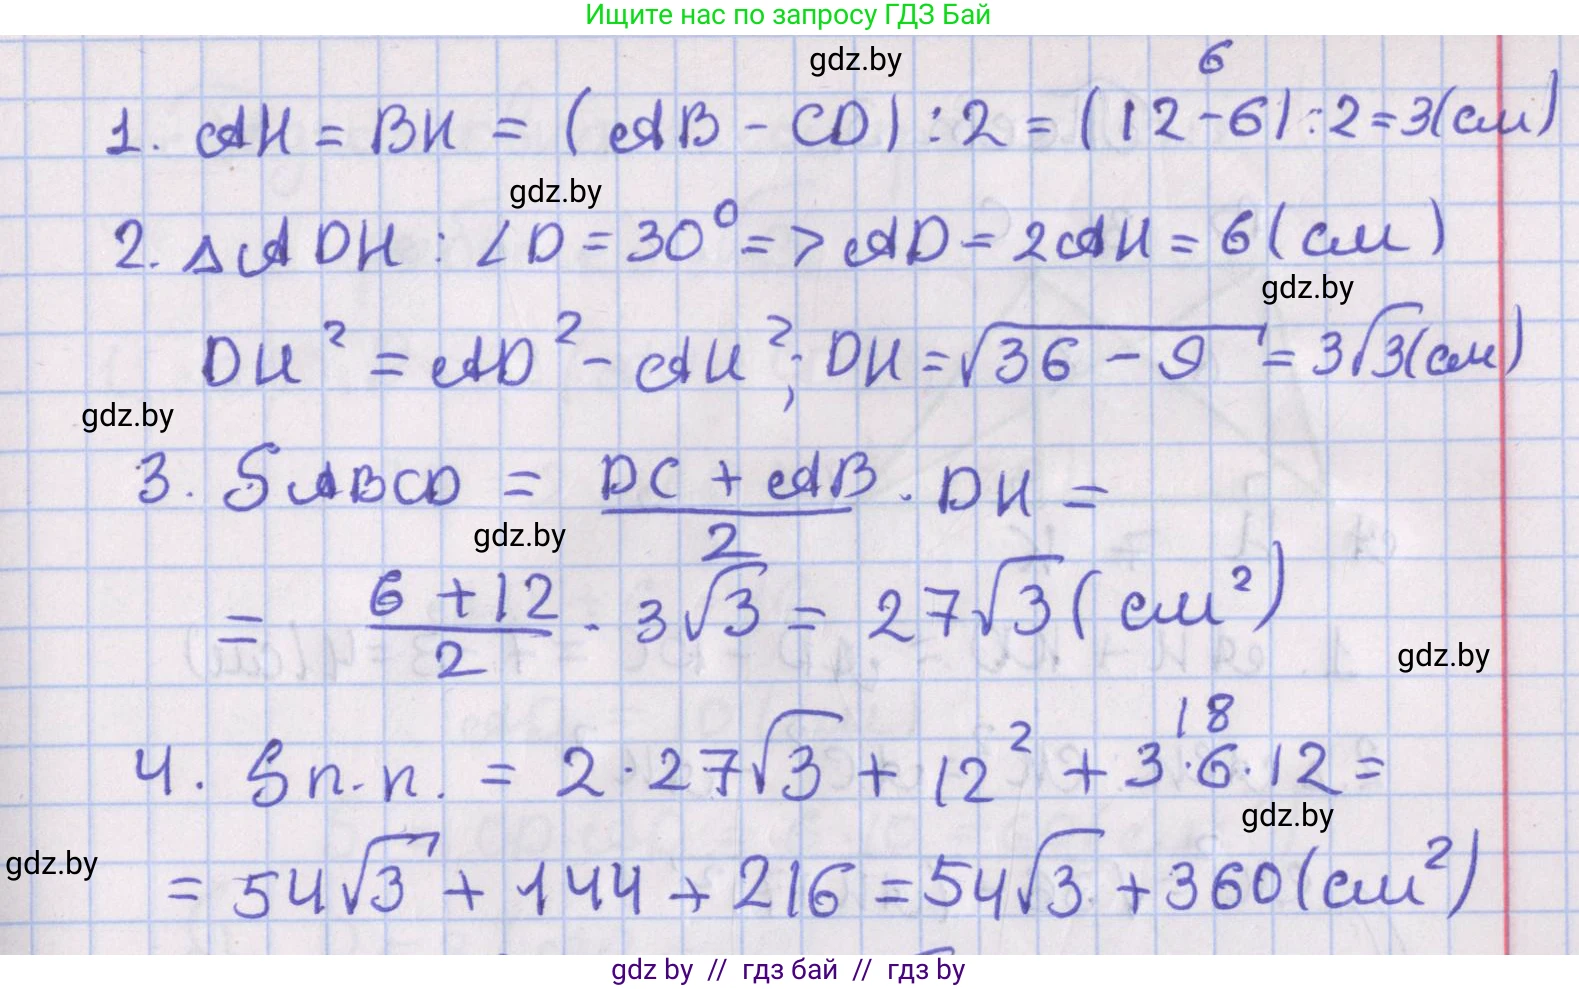 Ищите нас по запросу ГДЗ Бай
gdz.by
6
1. AH = BK = (AB - CD) : 2 = (12-6) : 2 = 3(см)
gdz.by
2. △ADH : ∠D = 30° => AD = 2AH = 6(см)
gdz.by
DH² = AD² - AH²; DH = √36 - 9 = 3√3(см)
gdz.by
3. SABCD = (DC + AB)/2 · DH =
gdz.by
= (6 + 12)/2 · 3√3 = 27√3 (см²)
gdz.by
18
4. Sп.п. = 2·27√3 + 12² + 3·6·12 =
gdz.by
gdz.by
= 54√3 + 144 + 216 = 54√3 + 360(см²)
gdz by // гдз бай // gdz by